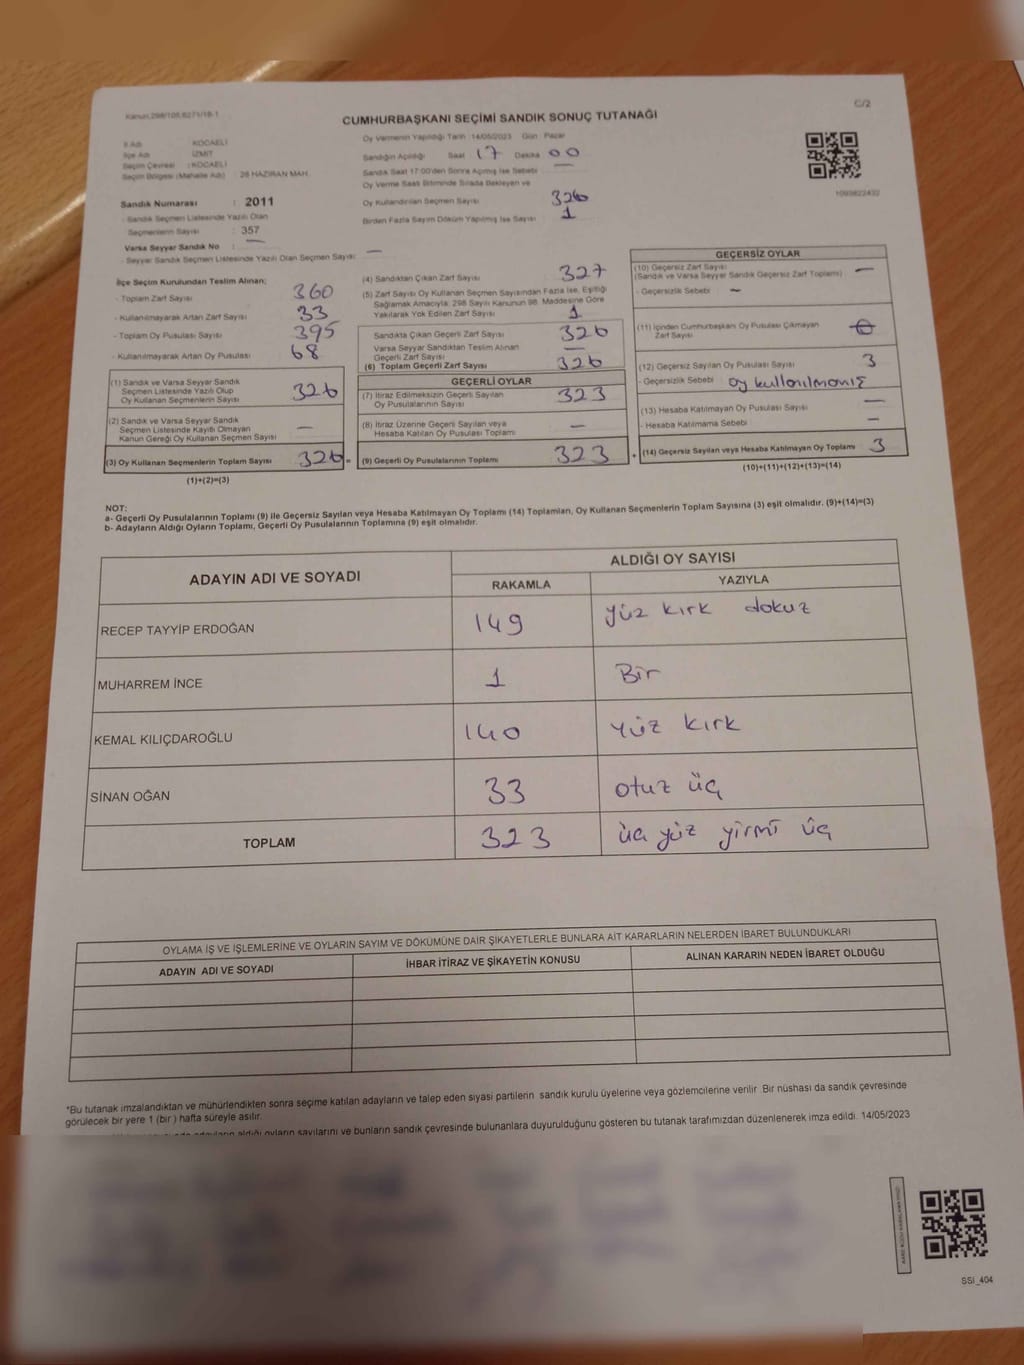 Kanun:298/105,6271/18-1
C/2
CUMHURBAŞKANI SEÇİMİ SANDIK SONUÇ TUTANAĞI
İl Adı : KOCAELİ
İlçe Adı : İZMİT
Seçim Çevresi : KOCAELİ
Seçim Bölgesi (Mahalle Adı) : 28 HAZİRAN MAH.
Sandık Numarası : 2011
- Sandık Seçmen Listesinde Yazılı Olan
Seçmenlerin Sayısı : 357
Varsa Seyyar Sandık No : —
- Seyyar Sandık Seçmen Listesinde Yazılı Olan Seçmen Sayısı: —
Oy Vermenin Yapıldığı Tarih :14/05/2023 Gün : Pazar
Sandığın Açıldığı Saat 17 Dakika 00
Sandık Saat 17:00'den Sonra Açılmış İse Sebebi —
Oy Verme Saati Bitiminde Sırada Bekleyen ve
Oy Kullandırılan Seçmen Sayısı 326
Birden Fazla Sayım Döküm Yapılmış İse Sayısı 1
1093822432
İlçe Seçim Kurulundan Teslim Alınan;
- Toplam Zarf Sayısı 360
- Kullanılmayarak Artan Zarf Sayısı 33
- Toplam Oy Pusulası Sayısı 395
- Kullanılmayarak Artan Oy Pusulası 68
(1) Sandık ve Varsa Seyyar Sandık
Seçmen Listesinde Yazılı Olup
Oy Kullanan Seçmenlerin Sayısı 326
(2) Sandık ve Varsa Seyyar Sandık
Seçmen Listesinde Kayıtlı Olmayan
Kanun Gereği Oy Kullanan Seçmen Sayısı —
(3) Oy Kullanan Seçmenlerin Toplam Sayısı 326 =
(1)+(2)=(3)
(4) Sandıktan Çıkan Zarf Sayısı 327
(5) Zarf Sayısı Oy Kullanan Seçmen Sayısından Fazla İse, Eşitliği
Sağlamak Amacıyla; 298 Sayılı Kanunun 98. Maddesine Göre
Yakılarak Yok Edilen Zarf Sayısı 1
Sandıkta Çıkan Geçerli Zarf Sayısı 326
Varsa Seyyar Sandıktan Teslim Alınan
Geçerli Zarf Sayısı —
(6) Toplam Geçerli Zarf Sayısı 326
GEÇERLİ OYLAR
(7) İtiraz Edilmeksizin Geçerli Sayılan
Oy Pusulalarının Sayısı 323
(8) İtiraz Üzerine Geçerli Sayılan veya
Hesaba Katılan Oy Pusulası Toplamı —
(9) Geçerli Oy Pusulalarının Toplamı 323 +
GEÇERSİZ OYLAR
(10) Geçersiz Zarf Sayısı
(Sandık ve Varsa Seyyar Sandık Geçersiz Zarf Toplamı) —
- Geçersizlik Sebebi : —
(11) İçinden Cumhurbaşkanı Oy Pusulası Çıkmayan
Zarf Sayısı
(12) Geçersiz Sayılan Oy Pusulası Sayısı 3
- Geçersizlik Sebebi : oy kullanılmamış
(13) Hesaba Katılmayan Oy Pusulası Sayısı —
- Hesaba Katılmama Sebebi : —
(14) Geçersiz Sayılan veya Hesaba Katılmayan Oy Toplamı 3
(10)+(11)+(12)+(13)=(14)
NOT:
a- Geçerli Oy Pusulalarının Toplamı (9) ile Geçersiz Sayılan veya Hesaba Katılmayan Oy Toplamı (14) Toplamları, Oy Kullanan Seçmenlerin Toplam Sayısına (3) eşit olmalıdır. (9)+(14)=(3)
b- Adayların Aldığı Oyların Toplamı, Geçerli Oy Pusulalarının Toplamına (9) eşit olmalıdır.
ADAYIN ADI VE SOYADI
ALDIĞI OY SAYISI
RAKAMLA YAZIYLA
RECEP TAYYİP ERDOĞAN 149 yüz kırk dokuz
MUHARREM İNCE 1 Bir
KEMAL KILIÇDAROĞLU 140 yüz kırk
SİNAN OĞAN 33 otuz üç
TOPLAM 323 üç yüz yirmi üç
OYLAMA İŞ VE İŞLEMLERİNE VE OYLARIN SAYIM VE DÖKÜMÜNE DAİR ŞİKAYETLERLE BUNLARA AİT KARARLARIN NELERDEN İBARET BULUNDUKLARI
ADAYIN ADI VE SOYADI İHBAR İTİRAZ VE ŞİKAYETİN KONUSU ALINAN KARARIN NEDEN İBARET OLDUĞU
*Bu tutanak imzalandıktan ve mühürlendikten sonra seçime katılan adayların ve talep eden siyasi partilerin sandık kurulu üyelerine veya gözlemcilerine verilir. Bir nüshası da sandık çevresinde
görülecek bir yere 1 (bir) hafta süreyle asılır.
adayların aldığı oyların sayılarını ve bunların sandık çevresinde bulunanlara duyurulduğunu gösteren bu tutanak tarafımızdan düzenlenerek imza edildi. 14/05/2023
SSİ_404